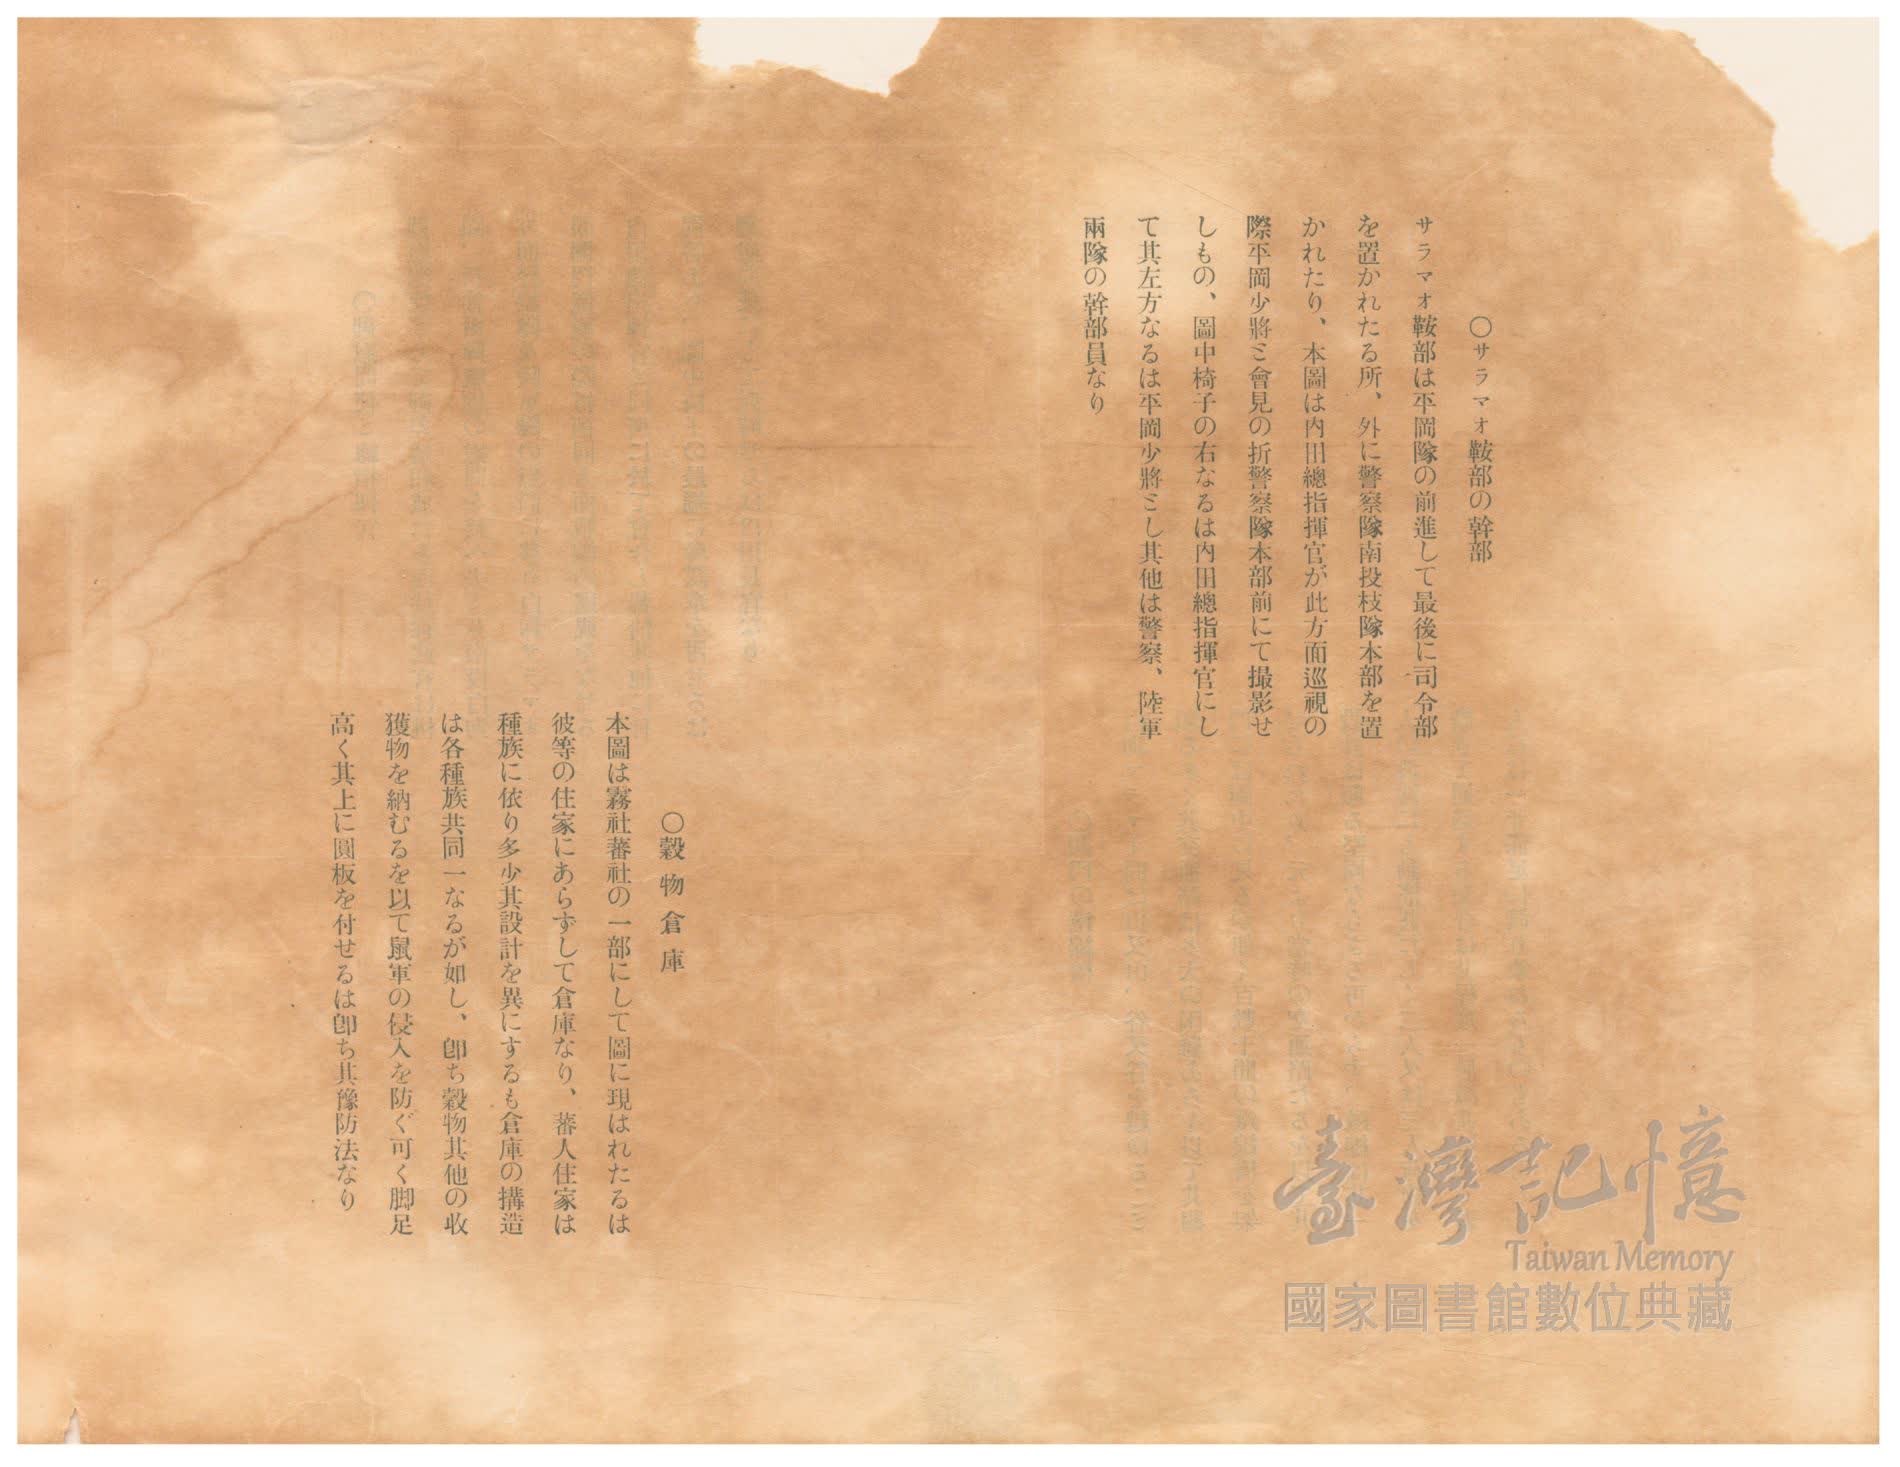 〇サラマオ鞍部の幹部
サラマオ鞍部は平岡隊の前進して最後に司令部
を置かれたる所、外に警察隊南投枝隊本部を置
かれたり、本圖は内田總指揮官が此方面巡視の
際平岡少將ミ會見の折警察隊本部前にて撮影せ
しもの、圖中椅子の右なるは内田總指揮官にし
て其左方なるは平岡少將ミし其他は警察、陸軍
兩隊の幹部員なり
〇穀物倉庫
本圖は霧社蕃社の一部にして圖に現はれたるは
彼等の住家にあらずして倉庫なり、蕃人住家は
種族に依り多少其設計を異にするも倉庫の搆造
は各種族共同一なるが如し、卽ち穀物其他の收
獲物を納むるを以て鼠軍の侵入を防ぐ可く脚足
高く其上に圓板を付せるは卽ち其豫防法なり
臺灣記憶
Taiwan Memory
國家圖書館數位典藏